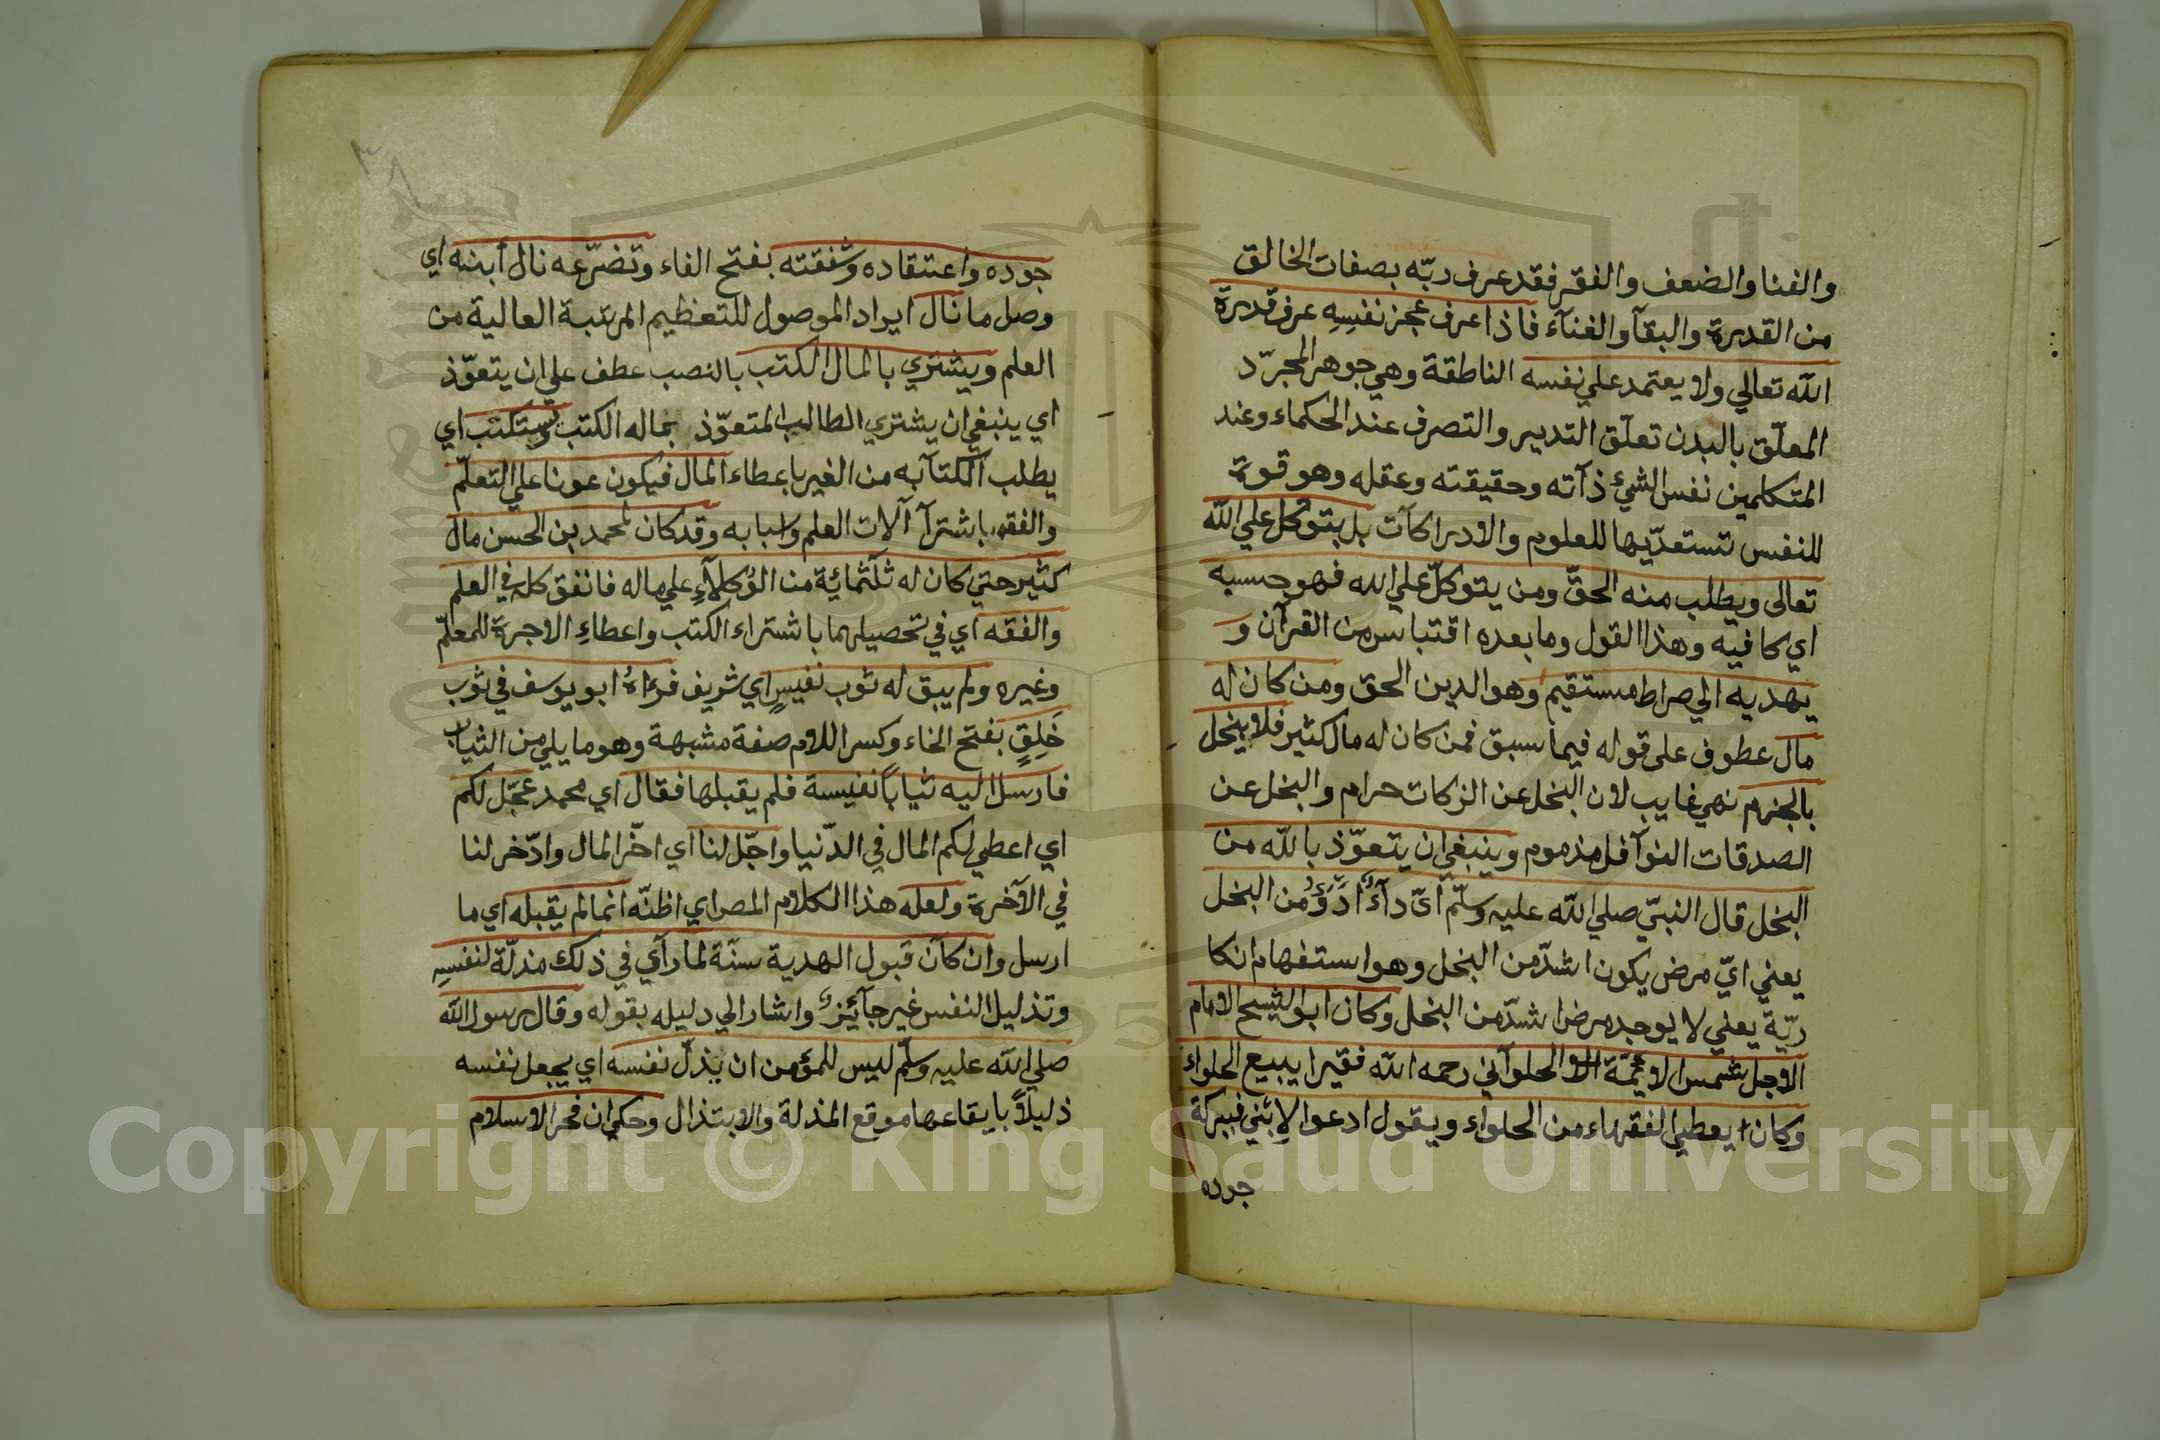 والفنا والضعف والفقر فقد عرف ربّه بصفات الخالق
من القدرة والبقآ والغنآء فاذا عرف عجز نفسِهِ عرف قدرة
الله تعالي ولا يعتمد علي نفسه الناطقة وهي جوهر المجرّد
المعلّق بالبدن تعلّق التدبير والتصرف عند الحكماء وعند
المتكلمين نفس الشيء ذآته وحقيقته وعقله وهو قوة
للنفس تستعدّ بها للعلوم والادراكآت بل يتوكّل علي الله
تعالى ويطلب منه الحقّ ومن يتوكلّ علي الله فهو حسبه
اي كافيه وهذا القول وما بعده اقتباس من القرآن و
يهديه الي صراط مستقيم وهو الدين الحق ومن كان له
مال عطوف على قوله فيما سبق فمن كان له مال كثير فلا يبخل
بالجزم نهي غايب لان البخل عن الزكات حرام والبخل عن
الصدقات النوآفل مذموم وينبغي ان يتعوّذ بالله من
البخل قال النبيّ صلي الله عليه وسلّم ايّ دآءٍ ادْوَؤُ من البخل
يعني ايّ مرض يكون اشدّ من البخل وهو استفهام انكا
ريّة يعني لا يوجد مرض اشدّ من البخل وكان ابو الشيخ الامام
الاجل شمس الائمّة الحلوآني رحمه الله فقيرا يبيع الحلواء
وكان يعطي الفقهاء من الحلواء ويقول ادعوا لِابني فببركة
جوده
٣٨
جوده واعتقاده وشفقته بفتح الفاء وتضرّعه نال أبنه اي
وصل ما نال ايراد الموصول للتعظيم المرتبة العالية من
العلم ويشتري بالمال الكتب بالنصب عطف علي ان يتعوّذ
اي ينبغي ان يشتري الطالب المتعوّذ بماله الكتب ويستكتب اي
يطلب الكتابه من الغير باعطاء المال فيكون عونا علي التعلّم
والفقه باشترآ آلات العلم واسبابه وقد كان لمحمد بن الحسن مال
كثير حتي كان له ثلثمائية من الوُكلآءِ علي ماله فانفق كله في العلم
والفقه اي في تحصيلهما باشتراء الكتب واعطاءِ الاجرة للمعلّم
وغيره ولم يبق له ثوب نفيسٍ اي شريف فرءاهُ ابو يوسف في ثوب
خَلِقٍ بفتح الخاء وكسر اللام صفة مشبهة وهو ما يلي من الثياب
فارسل اليه ثياباً نفيسة فلم يقبلها فقال اي محمد عجّل لكم
اي اعطي لكم المال في الدّنيا واجّل لنا اي اخّر المال وادّخر لنا
في الآخرة ولعله هذا الكلام المصر اي اظنّه انما لم يقبله اي ما
ارسل وان كان قبول الهدية سنّة لما رآي في ذلك مذلّة لنفسِهِ
وتذليل النفس غير جآئزٍ واشار الي دليله بقوله وقال رسول الله
صلي الله عليه وسلّم ليس للمؤمن ان يذلّ نفسه اي يجعل نفسه
ذليلاً بايقاعها موقع المذلة والابتذال وحكي ان فخر الاسلام
Copyright © King Saud University